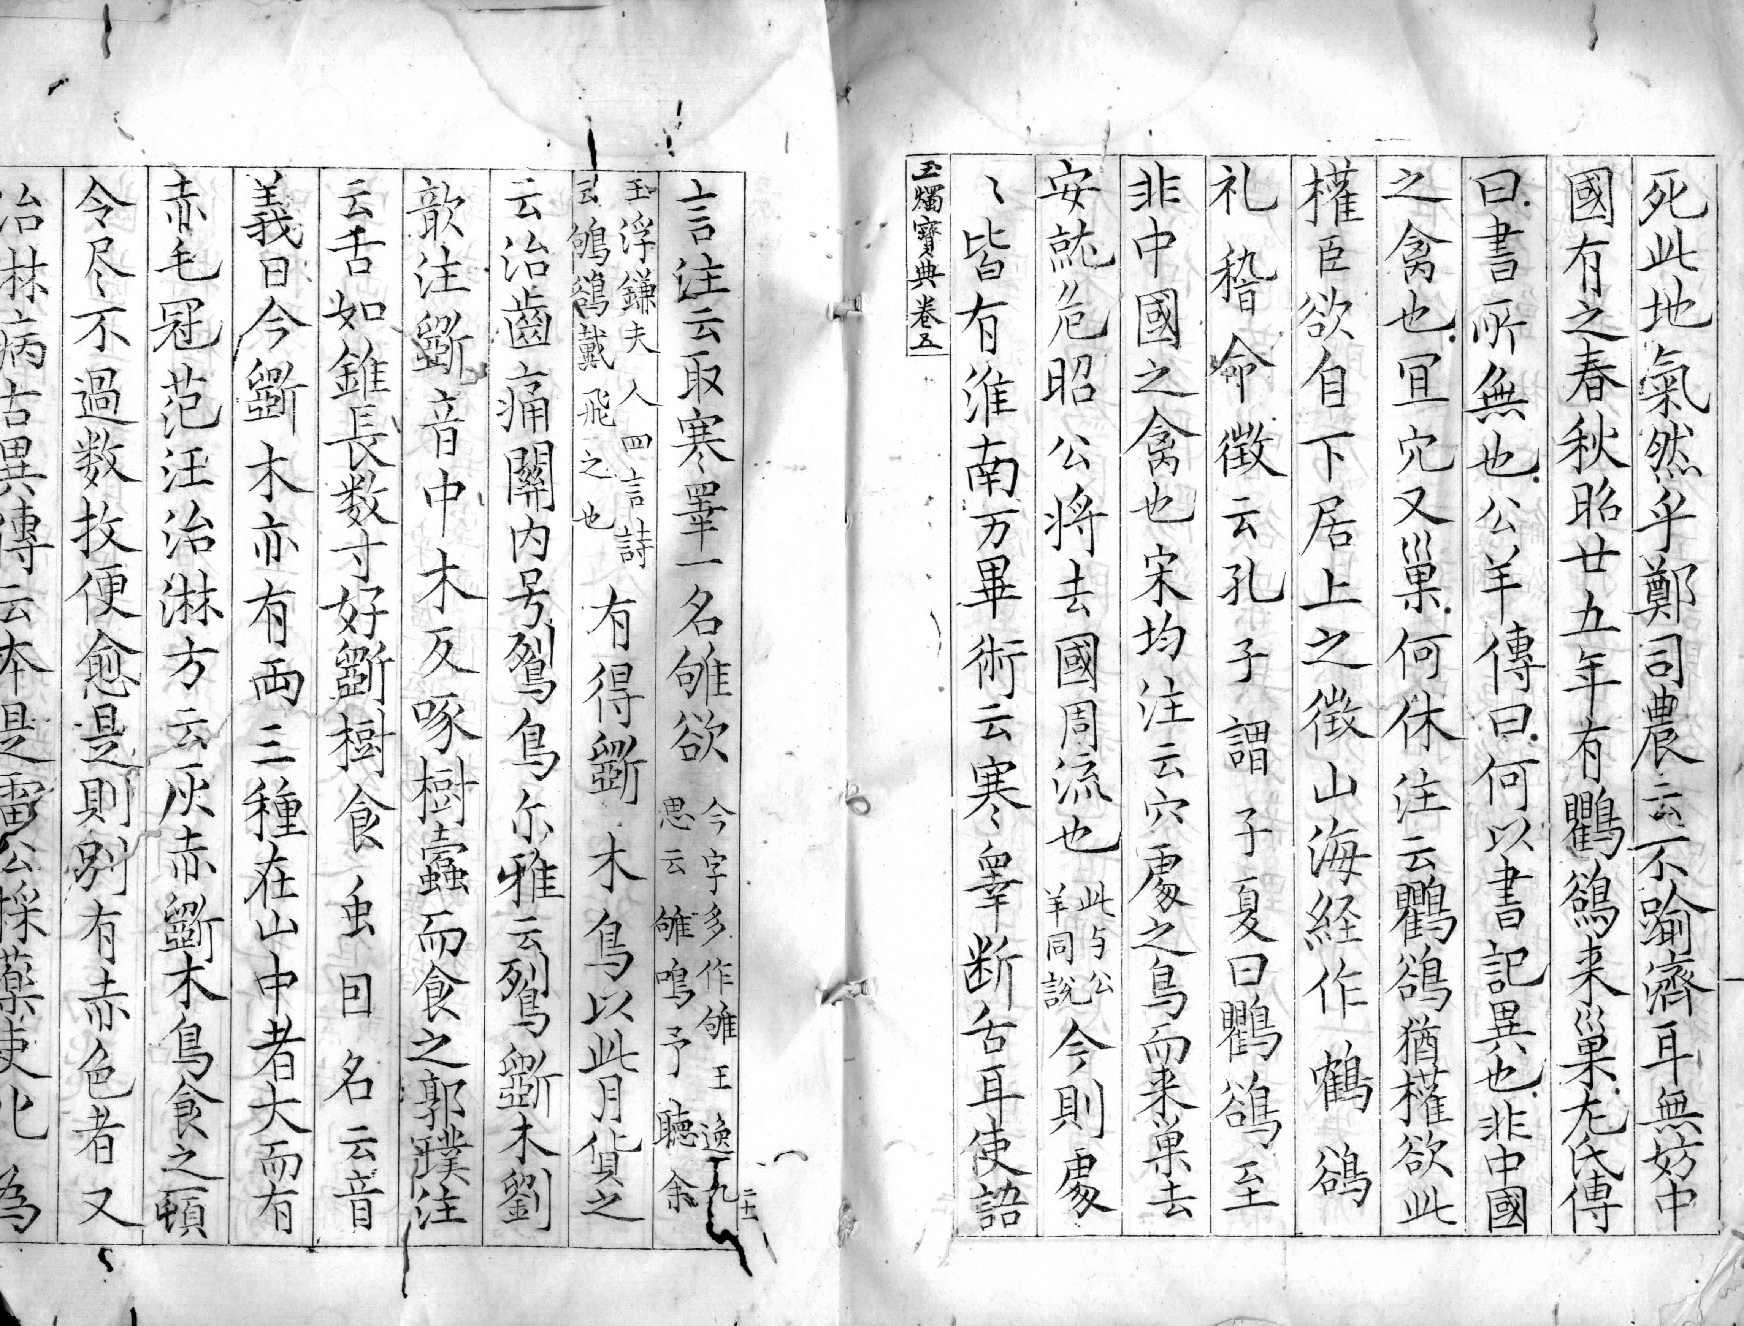 死此地氣然乎鄭司農云不踰濟耳無妨中
國有之春秋昭廿五年有鸜鵒来巢左氏傳
曰書所無也公羊傳曰何以書記異也非中國
之禽也冝穴又巢何休注云鸜鵒猶權欲此
權臣欲自下居上之徴山海経作鸖鵒
礼稽命徴云孔子謂子夏曰鸜鵒至
非中國之禽也宋均注云穴處之鳥而来巢去
安就危昭公将去國周流也此与公羊同説今則處
〻皆有淮南万畢術云寒睾断舌耳使語
玉燭寳典卷五
言注云取寒睾一名雊欲今字多作雊王逸九思云雊鳴予聽余
玉浮鎌夫人四言詩云鴝鵒戴飛之也有得斵木鳥以此月貨之
云治齒痛關内号鴷鳥尓雅云鴷斵木劉
歆注斵音中木反啄樹蠹而食之郭璞注
云舌如錐長数寸好斵樹食虫曰名云音
義曰今斵木亦有兩三種在山中者大而有
赤毛冠范汪治淋方云灰赤斵木鳥食之頓
令尽不過数枚便愈是則別有赤色者又
治林病古異傳云本是雷公採藥使化為